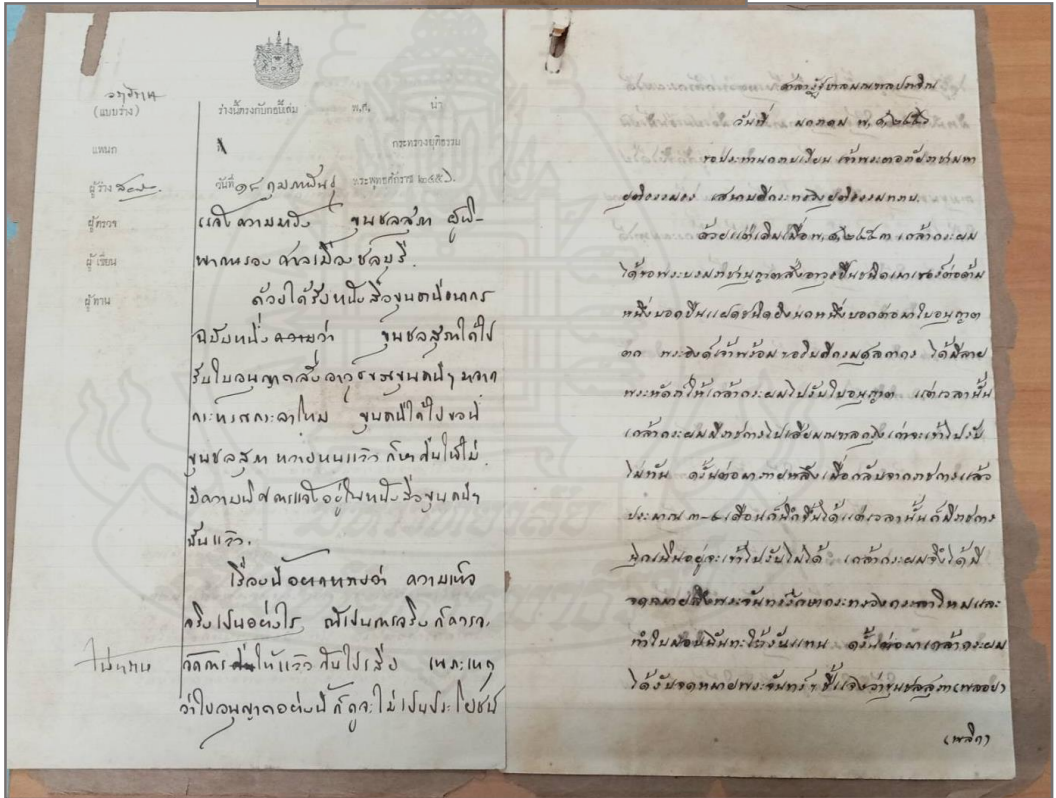 (แบบร่าง)
ร่างนี้ตรงกับกอปีเดิม พ.ศ. นำ
แพนก ที่ กระทรวงยุติธรรม
ผู้ร่าง วันที่ ๑๙ กุมภาพันธุ์ พระพุทธศักราช ๒๔๕
ผู้ตรวจ แจ้งความมายัง ขุนชลสุภา ผู้พิ-
ผู้เขียน พากษารอง ศาลเมืองชลบุรี.
ผู้ทาน ด้วยได้รับหนังสือขุน
ฉบับหนึ่ง ความว่า ขุนชลสุภาได้ไป
รับใบอนุญาตสั่งอาวุธของขุนคนีๆ จาก
กะทรวงกะลาโหม ขุนคนีได้ไปขอที่
ขุนชลสุภาหลายหนแล้ว ก็หาคืนให้ไม่
มีความพิศดารแจ้งอยู่ในหนังสือขุนคนีๆ
นั้นแล้ว.
เรื่องนี้อยากทราบว่า ความเท็จ
จริงเปนอย่างไร ถ้าเปนการจริง ก็ควรจะ
จัดการให้แล้วกันไปเสีย เพราะเหตุ
ว่าใบอนุญาตอย่างนี้ ก็ดูจะไม่เปนประโยชน์
ศาลารัฐบาลมณฑลปราจิณ
วันที่ มกราคม พ.ศ. ๒๔๕
ขอประทานกราบเรียน เจ้าพระยาอภัยราชามหา
ยุติธรรมธร เสนาบดีกระทรวงยุติธรรมทราบ
ด้วยแต่เดิมเมื่อ พ.ศ. ๒๔๕๓ เกล้ากระผม
ได้ขอพระบรมราชานุญาตสั่งอาวุธปืนชนิดเมาเซอร์ต่อด้าม
หนึ่งบอกปืนแฝดชนิดยิงนกหนึ่งบอกต่อมาใบอนุญาต
ตก พระองค์เจ้าพร้อม อธิบดีกรมศุลกากร ได้มีลาย
พระหัดถ์ให้เกล้ากระผมไปรับใบอนุญาต แต่เวลานั้น
เกล้ากระผมมีราชการไปเสียมณฑลกรุงเก่าจะเข้าไปรับ
ไม่ทัน ครั้นต่อมาภายหลังเมื่อกลับจากราชการแล้ว
ประมาณ ๓-๔ เดือนก็นึกขึ้นได้แต่เวลานั้นก็มีราชการ
อยู่จะเข้าไปรับไม่ได้ เกล้ากระผมจึงได้มี
จดหมายถึงพระจันทร์ กระทรวงกระลาโหมและ
ทำใบมอบฉันทะให้รับแทน ครั้นต่อมาเกล้ากระผม
ได้รับจดหมายพระจันทร์ๆ ชี้แจงว่าขุนชลสุภา
(พลิก)